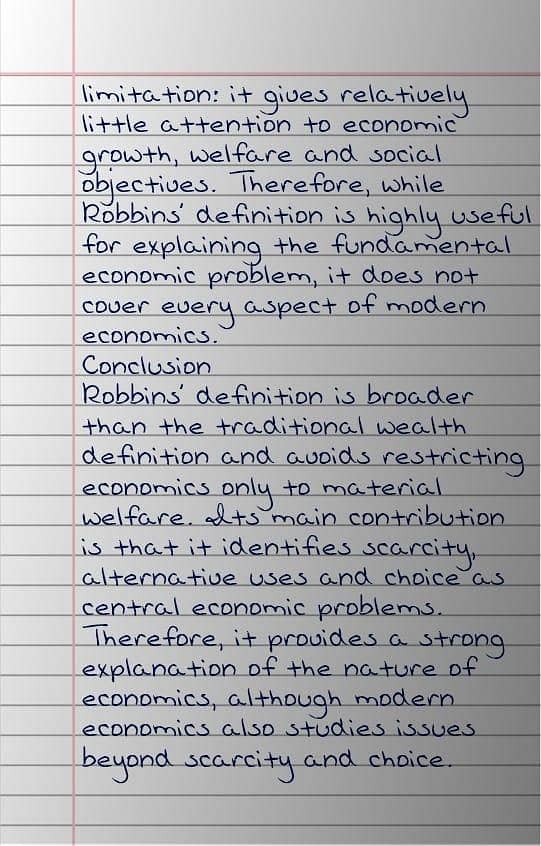 limitation: it gives relatively
little attention to economic
growth, welfare and social
objectives. Therefore, while
Robbins' definition is highly useful
for explaining the fundamental
economic problem, it does not
cover every aspect of modern
economics.
Conclusion
Robbins' definition is broader
than the traditional wealth
definition and avoids restricting
economics only to material
welfare. Its main contribution
is that it identifies scarcity,
alternative uses and choice as
central economic problems.
Therefore, it provides a strong
explanation of the nature of
economics, although modern
economics also studies issues
beyond scarcity and choice.